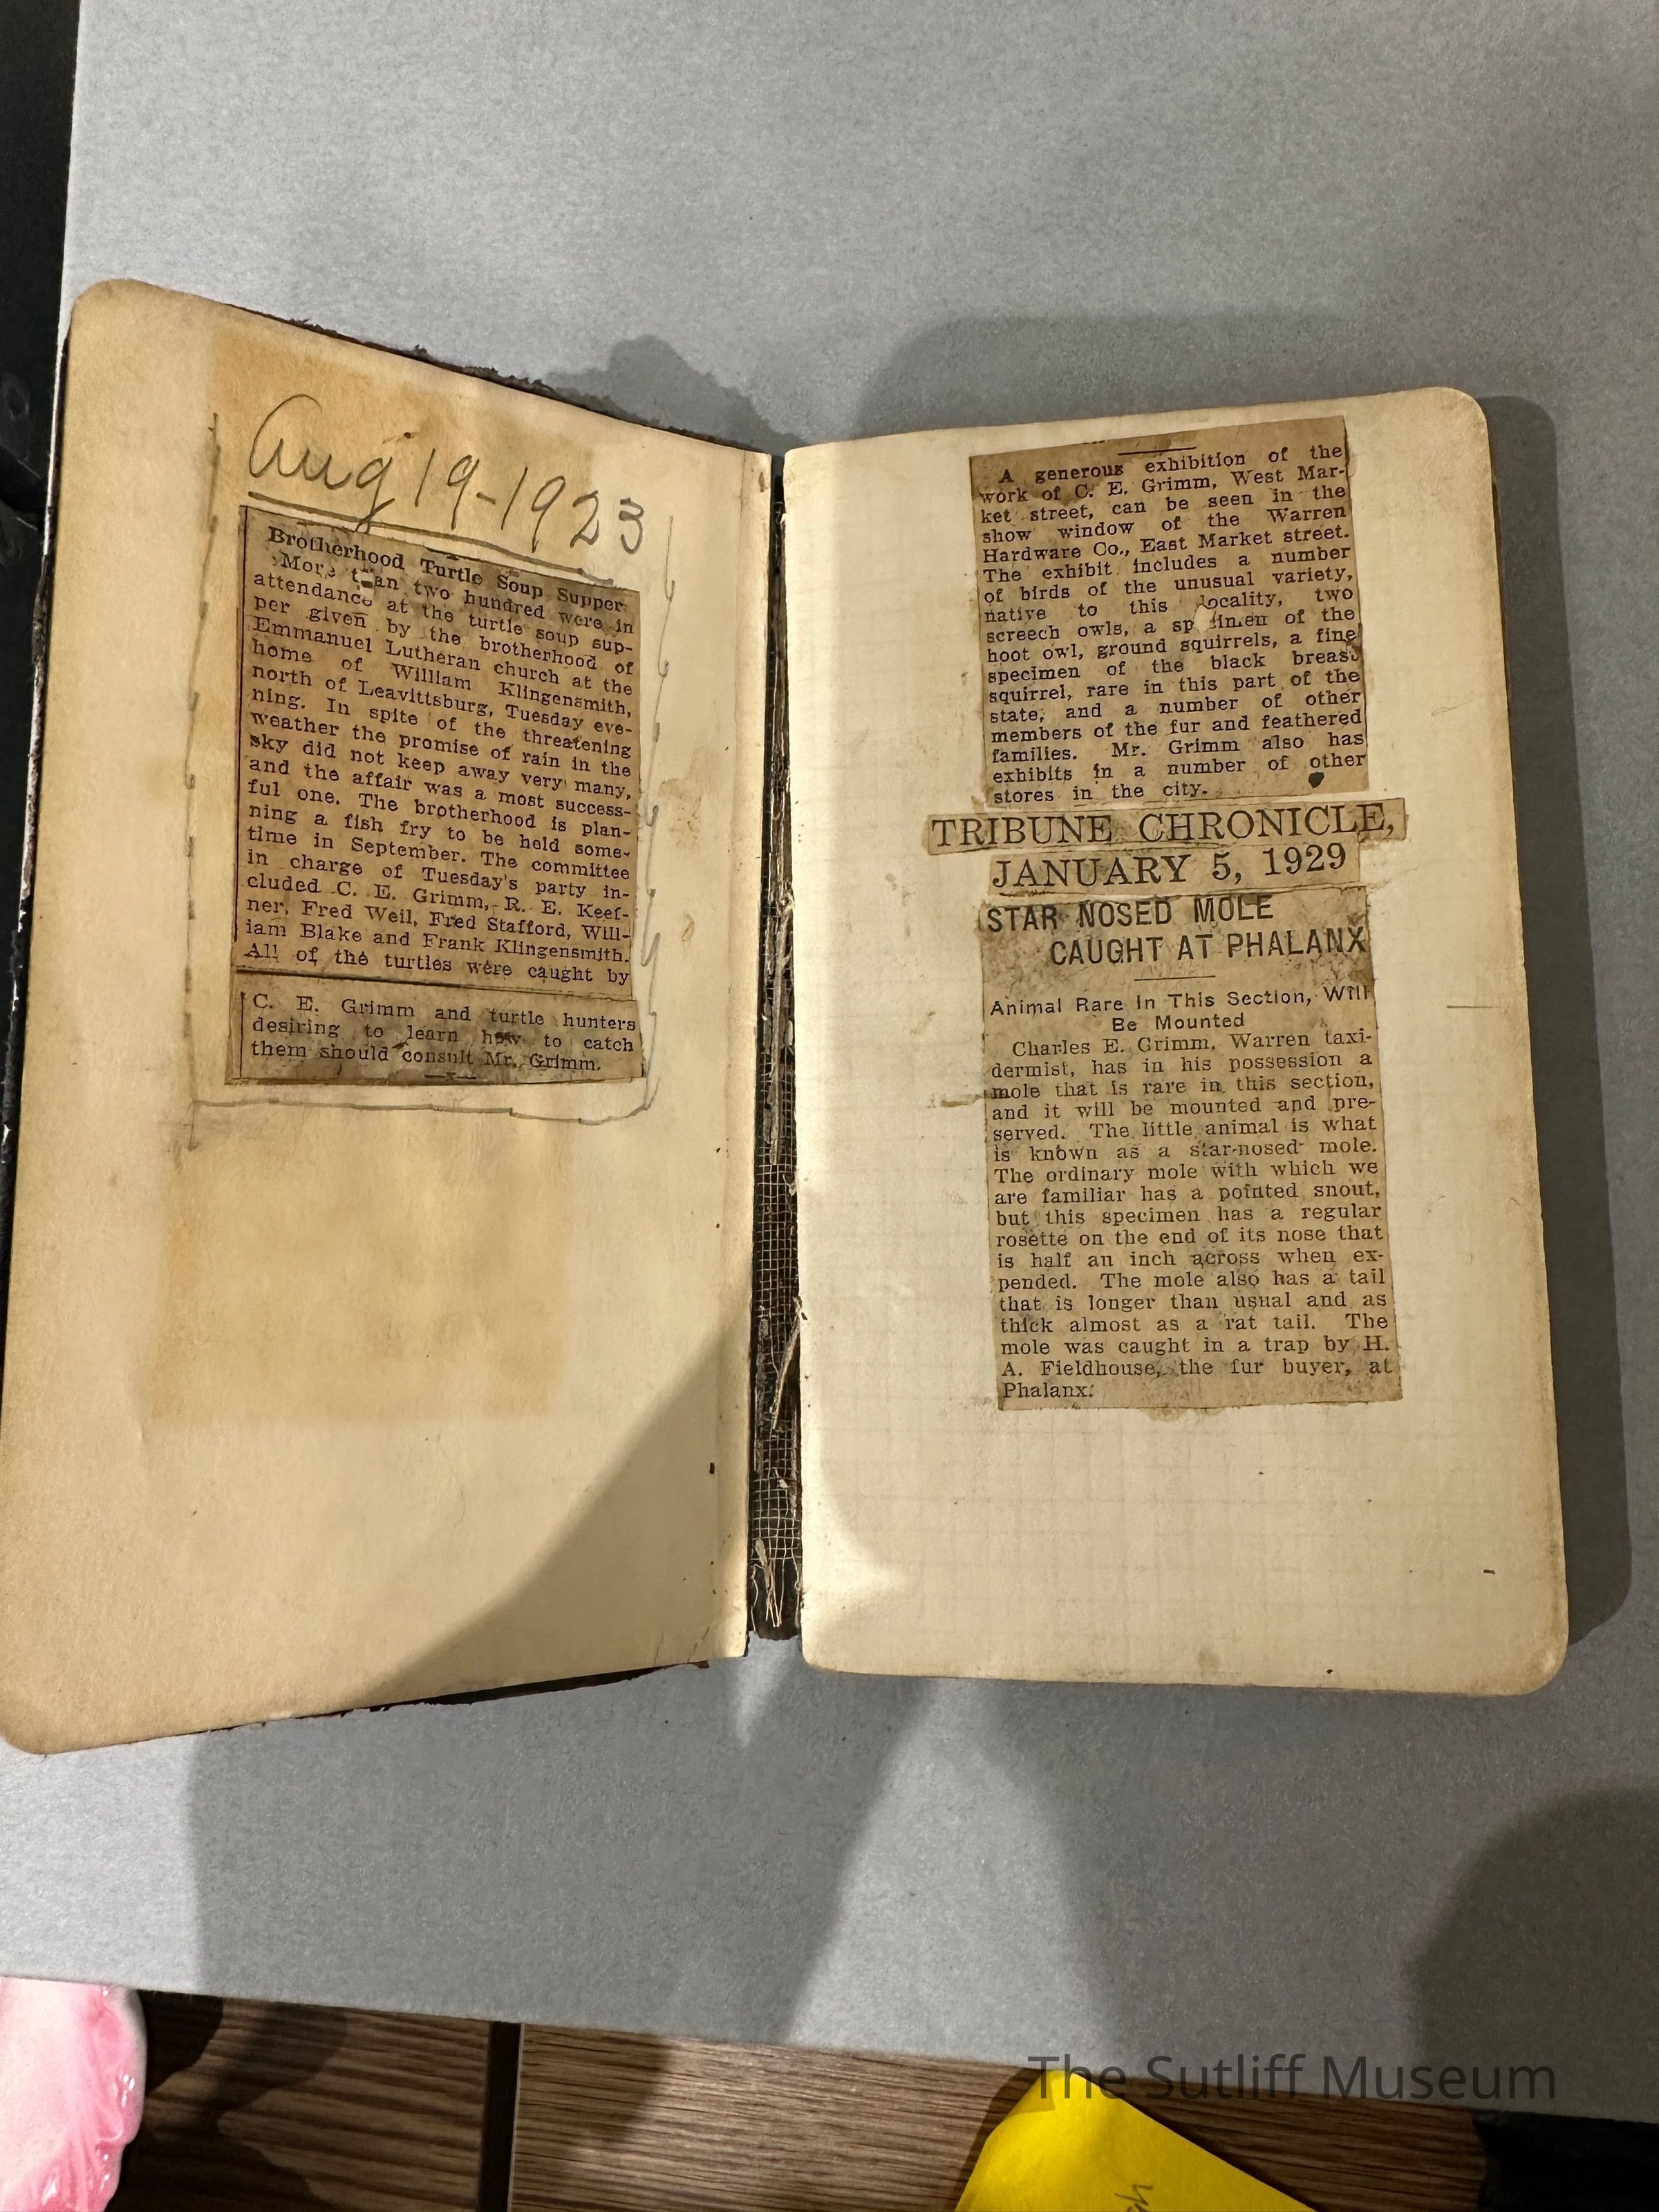 Aug 19-1923
Brotherhood Turtle Soup Supper
More than two hundred were in
attendance at the turtle soup sup-
per given by the brotherhood of
Emmanuel Lutheran church at the
home of William Klingensmith,
north of Leavittsburg, Tuesday eve-
ning. In spite of the threatening
weather the promise of rain in the
sky did not keep away very many,
and the affair was a most success-
ful one. The brotherhood is plan-
ning a fish fry to be held some-
time in September. The committee
in charge of Tuesday's party in-
cluded C. E. Grimm, R. E. Keef-
ner, Fred Weil, Fred Stafford, Will-
iam Blake and Frank Klingensmith.
All of the turtles were caught by
C. E. Grimm and turtle hunters
desiring to learn how to catch
them should consult Mr. Grimm.
A generous exhibition of the
work of C. E. Grimm, West Mar-
ket street, can be seen in the
show window of the Warren
Hardware Co., East Market street.
The exhibit includes a number
of birds of the unusual variety,
native to this locality, two
screech owls, a specimen of the
hoot owl, ground squirrels, a fine
specimen of the black breast
squirrel, rare in this part of the
state, and a number of other
members of the fur and feathered
families. Mr. Grimm also has
exhibits in a number of other
stores in the city.
TRIBUNE CHRONICLE,
JANUARY 5, 1929
STAR NOSED MOLE
CAUGHT AT PHALANX
Animal Rare In This Section, Will
Be Mounted
Charles E. Grimm, Warren taxi-
dermist, has in his possession a
mole that is rare in this section,
and it will be mounted and pre-
served. The little animal is what
is known as a star-nosed mole.
The ordinary mole with which we
are familiar has a pointed snout,
but this specimen has a regular
rosette on the end of its nose that
is half an inch across when ex-
pended. The mole also has a tail
that is longer than usual and as
thick almost as a rat tail. The
mole was caught in a trap by H.
A. Fieldhouse, the fur buyer, at
Phalanx.
The Sutliff Museum